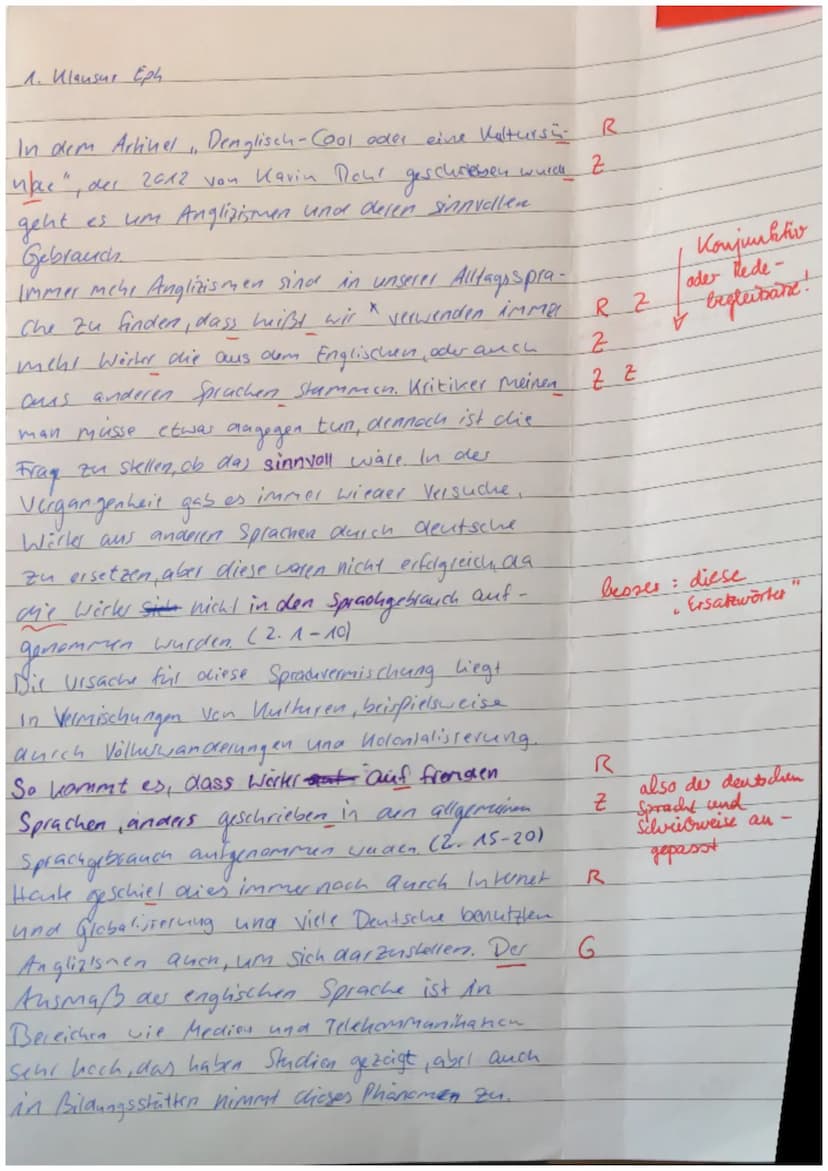 1. Klausur Eph
In dem Artikel „Denglisch-Cool oder eine Kultursü- R
nbe", der 2012 von Karin geschrieben wurde Z
geht es um Anglizismen und deren sinnvollen
Gebrauch
Immer mehr Anglizismen sind in unserer Alltagsspra-
che zu finden, dass heißt wir * verwenden immer R Z
mehr Wörter die aus dem Englischen, oder auch Z
aus anderen Sprachen stammen. Kritiker meinen Z Z
Konjunktiv
oder Rede-
begleitsätze!
man müsse etwas dagegen tun, dennoch ist die
Frag zu stellen, ob das sinnvoll wäre. In der
Vergangenheit gab es immer wieder Versuche,
Wörter aus anderen Sprachen durch deutsche
zu ersetzen, aber diese waren nicht erfolgreich, da
die Wörter sich nicht in den Sprachgebrauch auf-
besser: diese
„Ersatzwörter"
genommen wurden. (Z. 1-10)
Die Ursache für diese Sprachvermischung liegt
in Vermischungen von Kulturen, beispielsweise
durch Völkerwanderungen und Kolonialisierung.
So kommt es, dass Wörter auf fremden R
Sprachen, anders geschrieben in den allgemeinen Z
Sprachgebrauch aufgenommen werden. (Z. 15-20)
also der deutschen
Sprache und
Schreibweise an-
gepasst
Heute geschiet dies immer noch durch Internet R
und Globalisierung und viele Deutsche benutzten
Anglizismen auch, um sich darzustellen. Der G
Ausmaß der englischen Sprache ist in
Bereichen wie Medien und Telekommunikation
sehr hoch, das haben Studien gezeigt, aber auch
in Bildungsstätten nimmt dieses Phänomen zu.